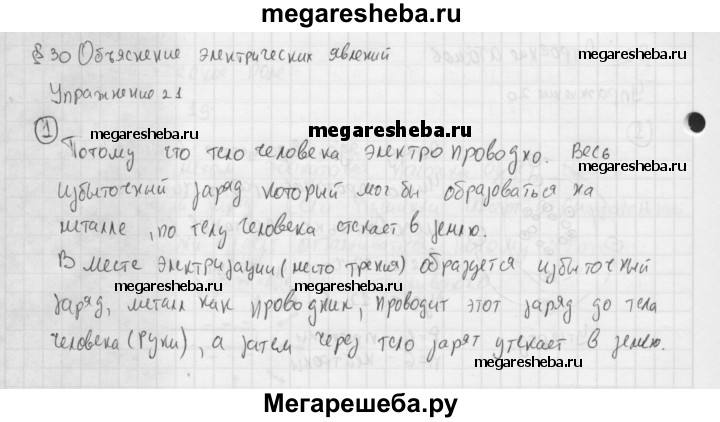 megaresheba.ru
§ 30 Объяснение электрических явлений
megaresheba.ru
Упражнение 21
1
megaresheba.ru
megaresheba.ru
Потому что тело человека электропроводно. Весь
megaresheba.ru
избыточный заряд который мог бы образоваться на
металле, по телу человека стекает в землю.
megaresheba.ru
В месте электризации (место трения) образуется избыточный
megaresheba.ru
заряд, металл как проводник, проводит этот заряд до тела
человека (руки), а затем через тело зарят утекает в землю.
megaresheba.ru
Мегарешеба.ру